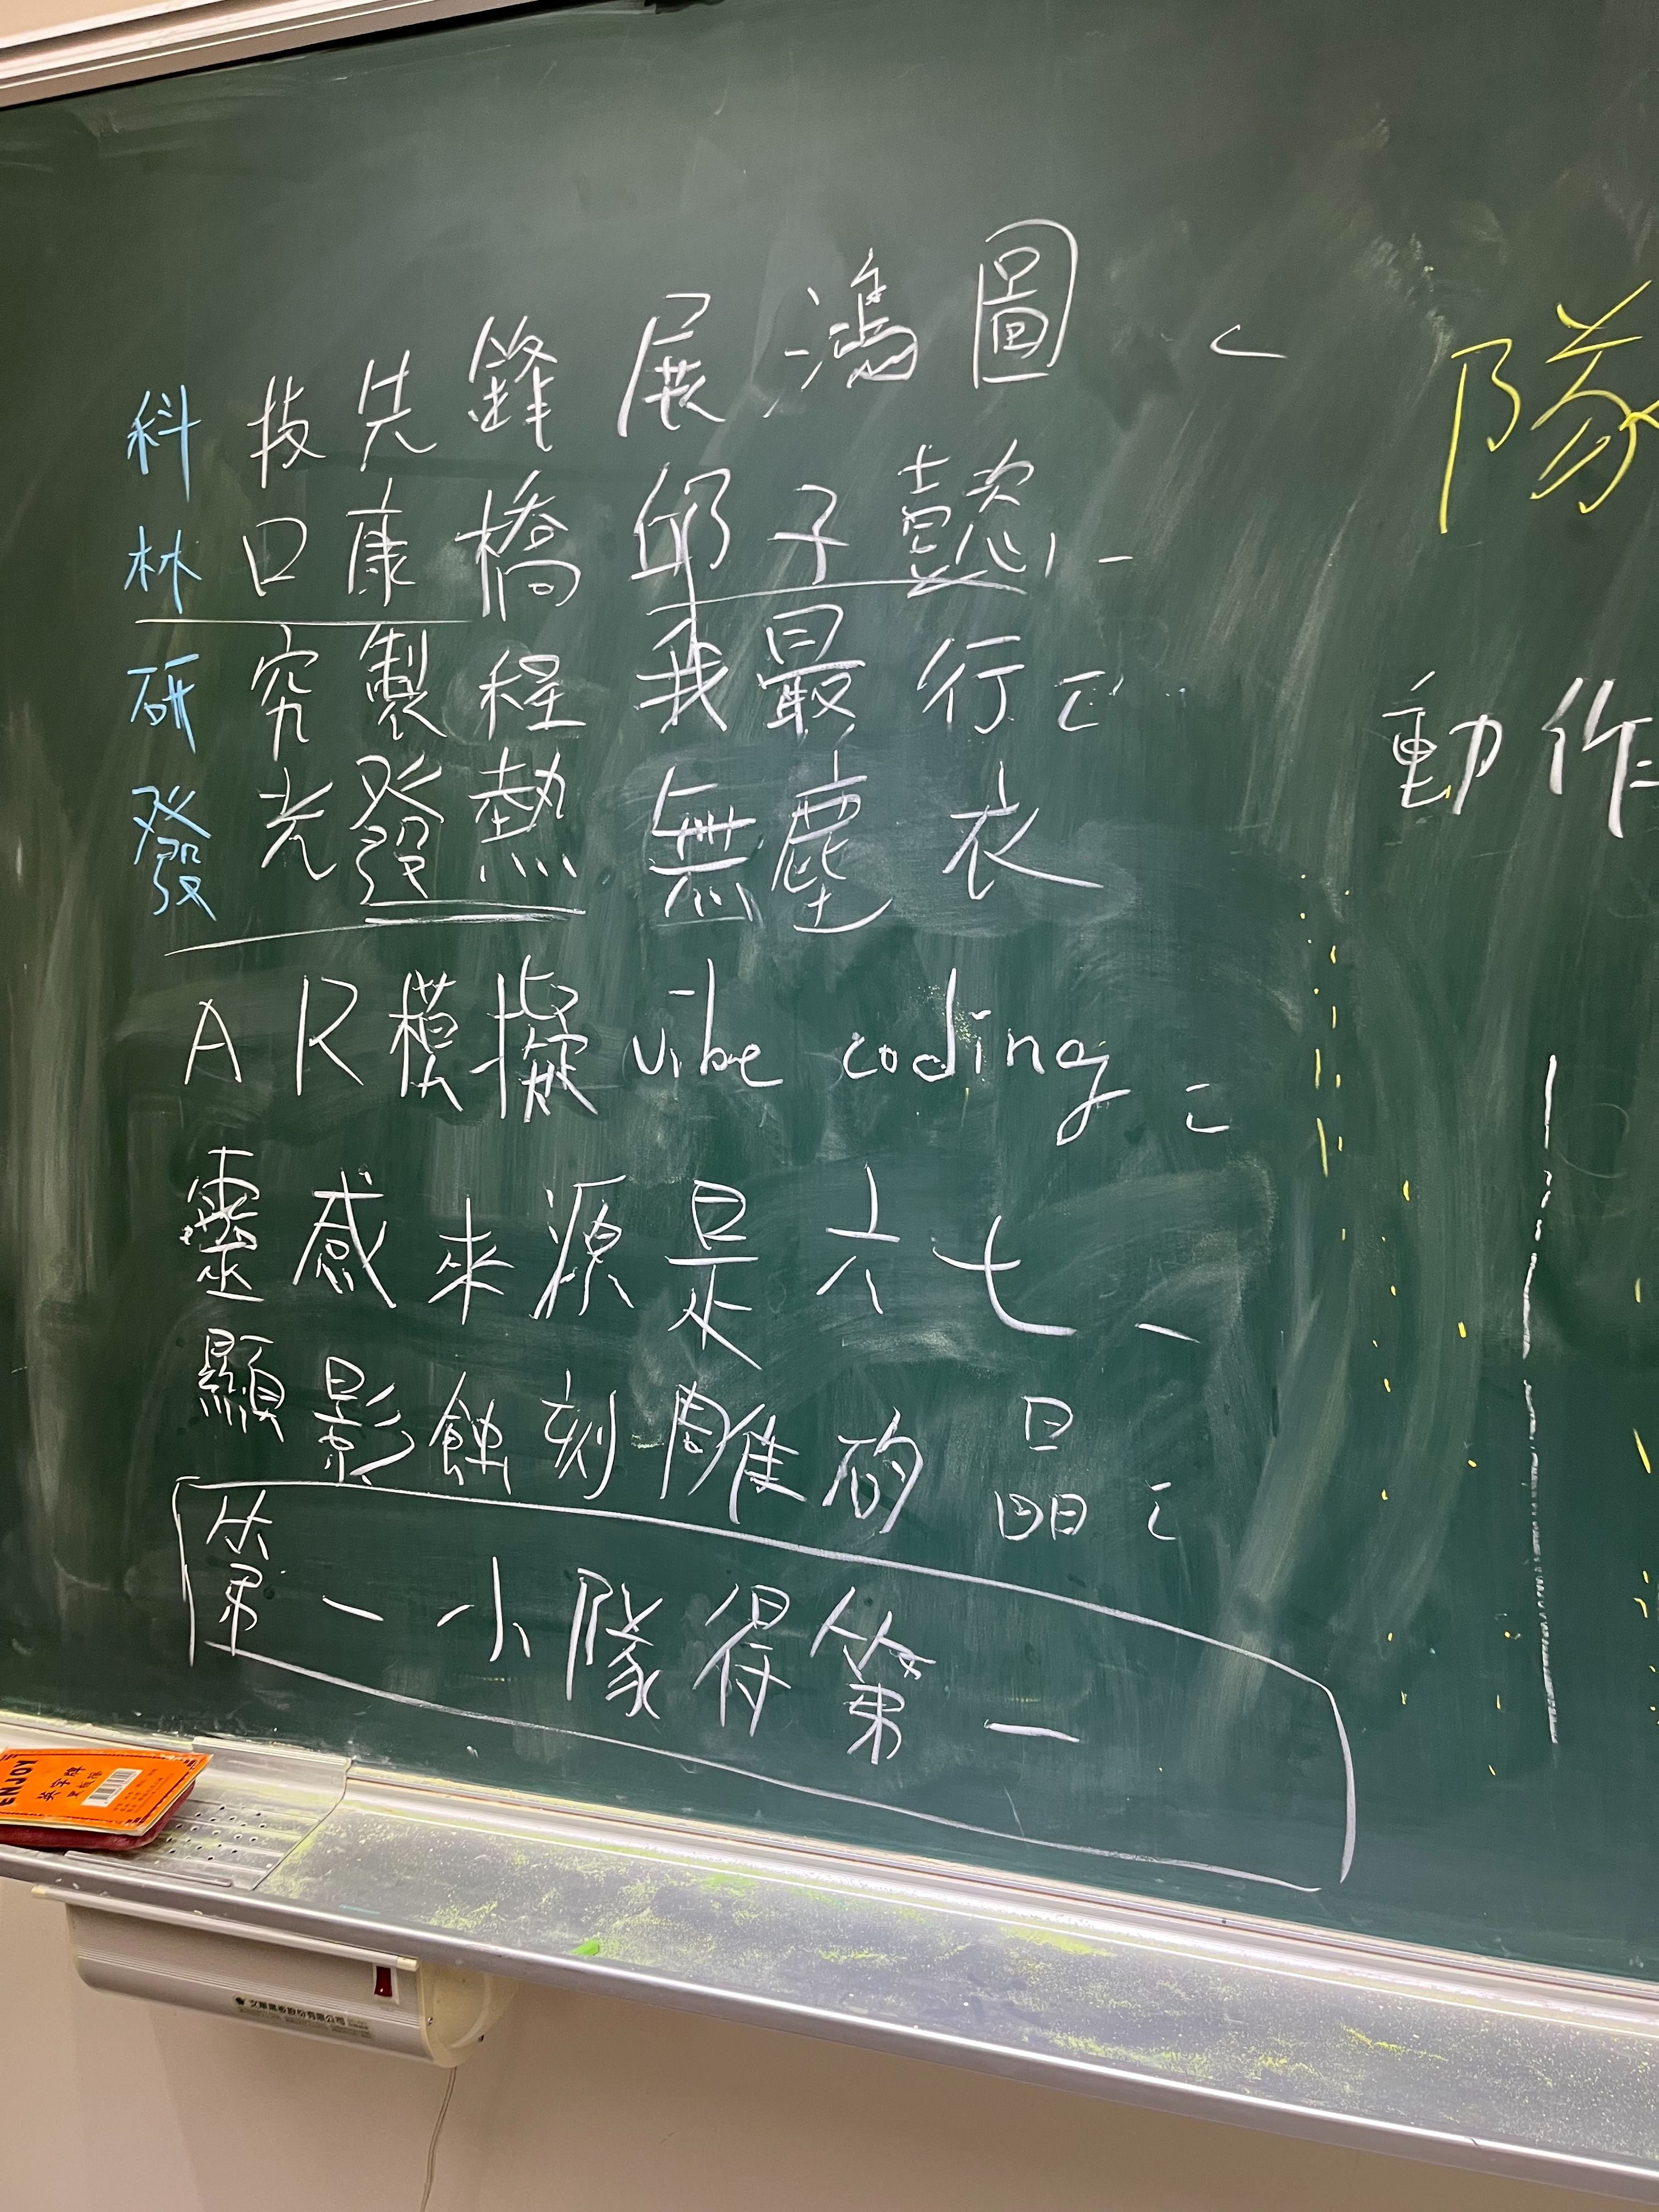 科技先鋒展鴻圖
林口康橋邱子懿
研究製程我最行
發光發熱無塵衣
AR模擬vibe coding
靈感來源是六七
顯影蝕刻雕矽晶
第一小隊得第一
隊
動作
ENJOY
英字牌